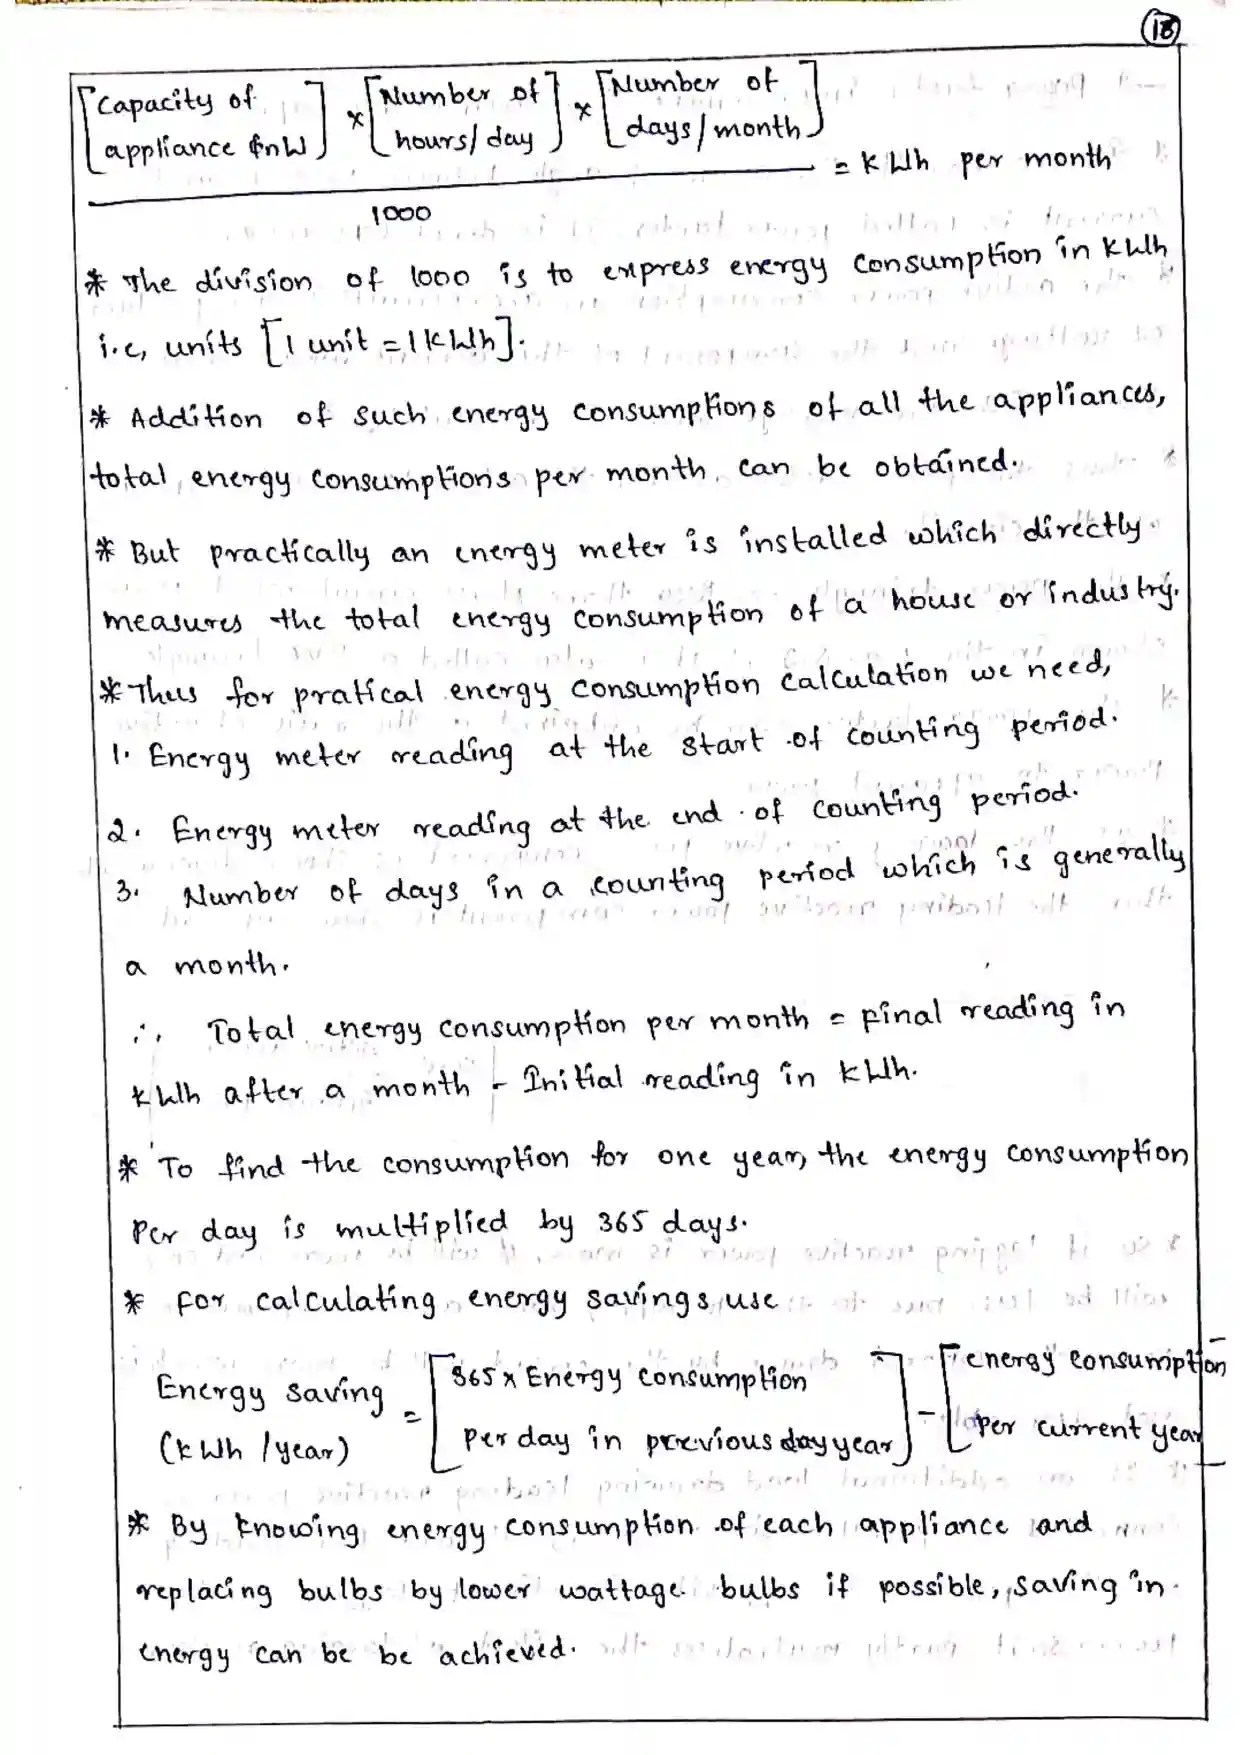 18
[Capacity of appliance in W] × [Number of hours/day] × [Number of days/month]
1000
= kWh per month
* The division of 1000 is to express energy consumption in kWh
i.e, units [1 unit = 1 kWh].
* Addition of such energy consumptions of all the appliances,
total energy consumptions per month can be obtained.
* But practically an energy meter is installed which directly.
measures the total energy consumption of a house or industry.
* Thus for pratical energy consumption calculation we need,
1. Energy meter reading at the start of counting period.
2. Energy meter reading at the end of counting period.
3. Number of days in a counting period which is generally
a month.
∴ Total energy consumption per month = final reading in
kWh after a month - Initial reading in kWh.
* To find the consumption for one year, the energy consumption
Per day is multiplied by 365 days.
* For calculating energy savings, use
Energy saving (kWh /year) = [365 x Energy consumption per day in previous day year] - [energy consumption per current year]
* By knowing energy consumption of each appliance and
replacing bulbs by lower wattage bulbs if possible, saving in
energy can be be achieved.